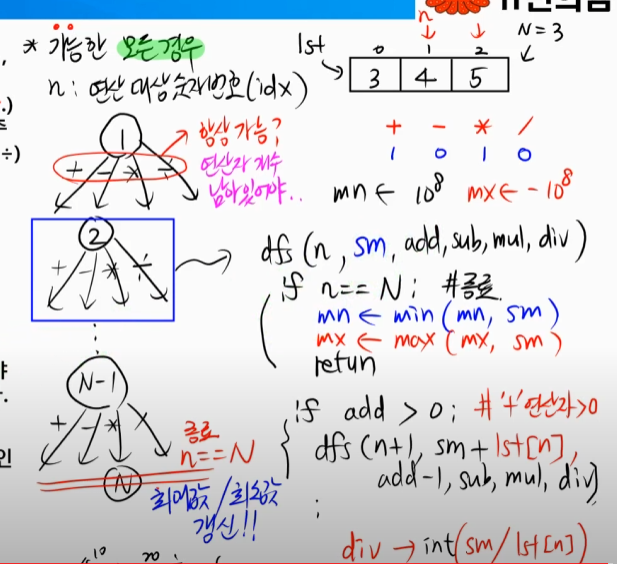 * 가능한 모든 경우
n : 연산 대상 숫자 번호 (idx)
lst
n
0 1 2
3 4 5
N = 3
.)
÷)
1
+ - * ÷
항상 가능?
연산자 개수
남아있어야..
+ - * /
1 0 1 0
mn ← 10⁸ mx ← -10⁸
2
+ - * ÷
dfs (n, sm, add, sub, mul, div)
if n == N : #종료
mn ← min (mn, sm)
mx ← max (mx, sm)
retun
N-1
+ - *
종료
n == N
N
최대값/최소값
갱신!!
if add > 0 : # '+'연산자>0
dfs (n+1, sm + lst[n],
add-1, sub, mul, div)
:
div → int(sm / lst[n])
10 20